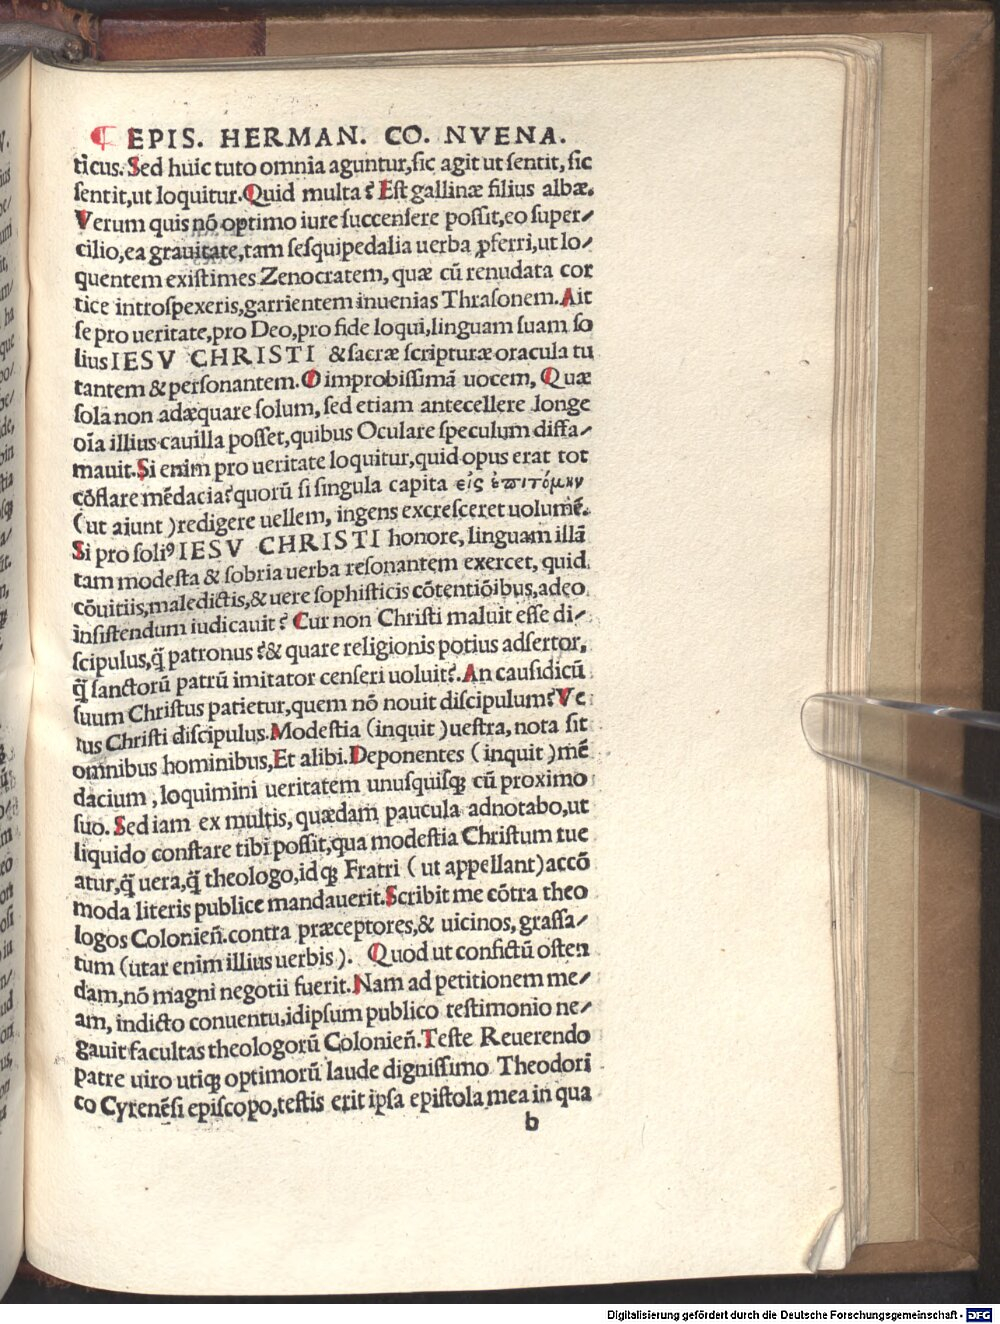 ¶ EPIS. HERMAN. CO. NVENA.
ticus. Sed huic tuto omnia aguntur, sic agit ut sentit, sic
sentit, ut loquitur. Quid multa? Est gallinæ filius albæ.
Verum quis nõ optimo iure succensere possit, eo super⸗
cilio, ea grauitate, tam sesquipedalia uerba ꝓferri, ut lo⸗
quentem existimes Zenocratem, quæ cũ renudata cor
tice introspexeris, garrientem inuenias Thrasonem. Ait
se pro ueritate, pro Deo, pro fide loqui, linguam suam so
lius IESV CHRISTI & sacræ scripturæ oracula tu
tantem & personantem. O improbissimã uocem, Quæ
sola non adæquare solum, sed etiam antecellere longe
oĩa illius cauilla posset, quibus Oculare speculum diffa⸗
mauit. Si enim pro ueritate loquitur, quid opus erat tot
cõflare mẽdacia? quorũ si singula capita εἰς ἐπιτόμην
(ut aiunt) redigere uellem, ingens excresceret uolumẽ.
Si pro soliꝰ IESV CHRISTI honore, linguam illã
tam modesta & sobria uerba resonantem exercet, quid
cõuitiis, maledictis, & uere sophisticis cõtentiõibus, adeo
insistendum iudicauit? Cur non Christi maluit esse di⸗
scipulus, q̃ patronus? & quare religionis potius adsertor,
q̃ sanctorũ patrũ imitator censeri uoluit? An causidicũ
suum Christus patietur, quem nõ nouit discipulum? Ve
rus Christi discipulus. Modestia (inquit) uestra, nota sit
omnibus hominibus, Et alibi. Deponentes (inquit) mẽ
dacium, loquimini ueritatem unusquisq; cũ proximo
suo. Sed iam ex multis, quædam paucula adnotabo, ut
liquido constare tibi possit, qua modestia Christum tue
atur, q̃ uera, q̃ theologo, id q; Fratri (ut appellant) accõ
moda literis publice mandauerit. Scribit me cõtra theo
logos Colonieñ. contra præceptores, & uicinos, grassa⸗
tum (utar enim illius uerbis). Quod ut confictũ osten
dam, nõ magni negotii fuerit. Nam ad petitionem me⸗
am, indicto conuentu, idipsum publico testimonio ne⸗
gauit facultas theologorũ Colonieñ. Teste Reuerendo
patre uiro utiq; optimorũ laude dignissimo Theodori
co Cyrenẽsi episcopo, testis erit ipsa epistola mea in qua
b
Digitalisierung gefördert durch die Deutsche Forschungsgemeinschaft - DFG